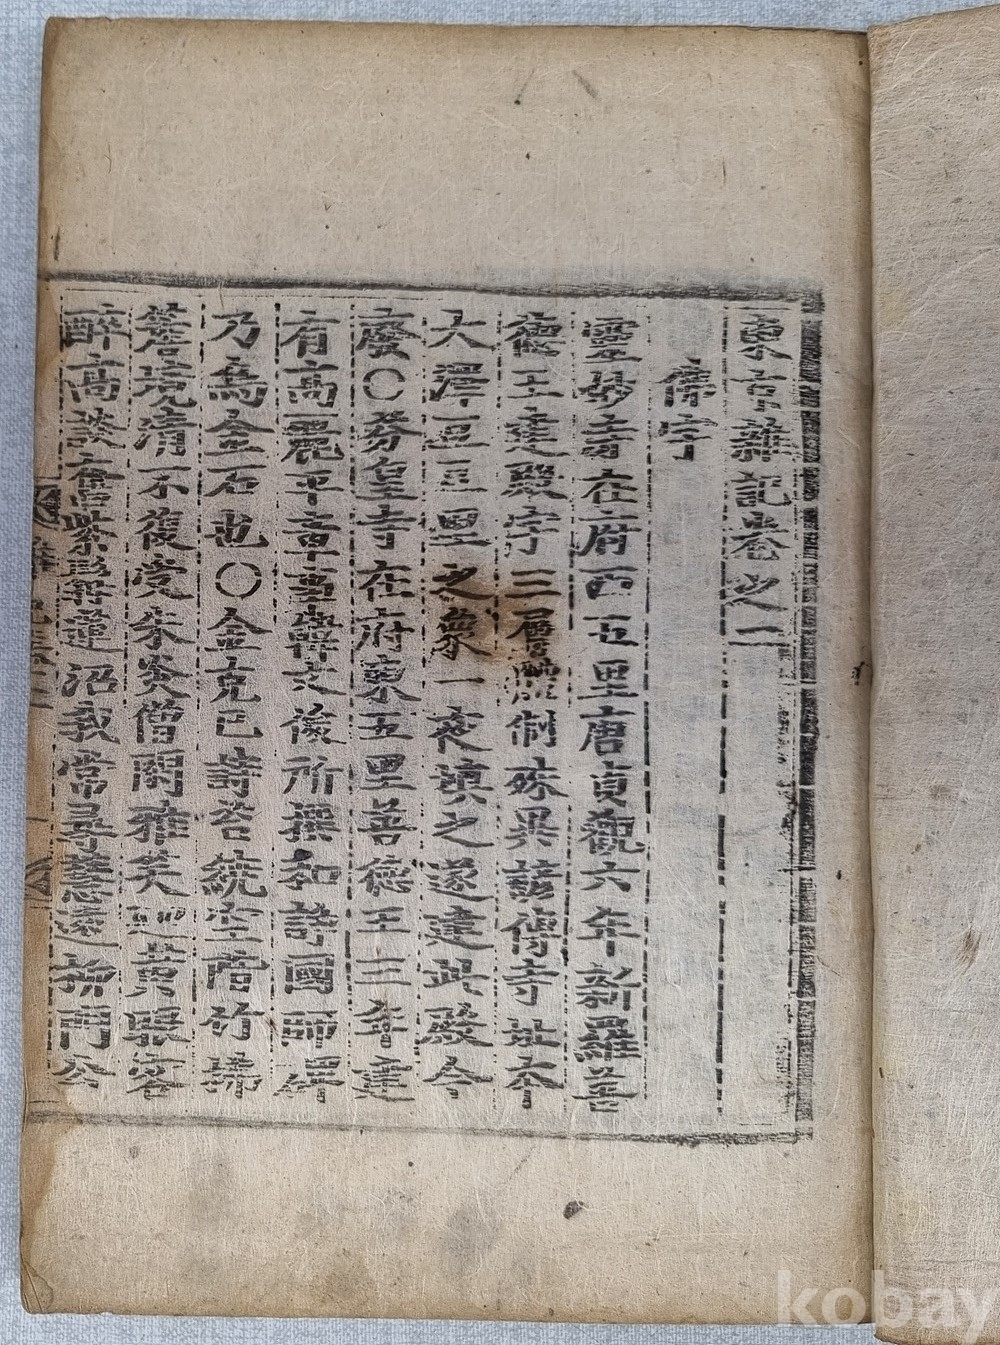 東京雜記卷之二
佛宇
靈妙寺在府西五里唐貞觀六年新羅善
德王建殿宇三層體制殊異諺傳寺址本
大澤豆豆里之衆一夜塡之遂建此殿今
廢〇芬皇寺在府東五里善德王三年建
有高麗平章事韓文俊所撰和諍國師碑
乃烏金石也〇金克己詩苔統空階竹擁
簷境淸不復受朱炎僧閑雅笑迎黃眼客
醉高談奮紫髯蓮沼我常尋慧遠柳門公
kobay